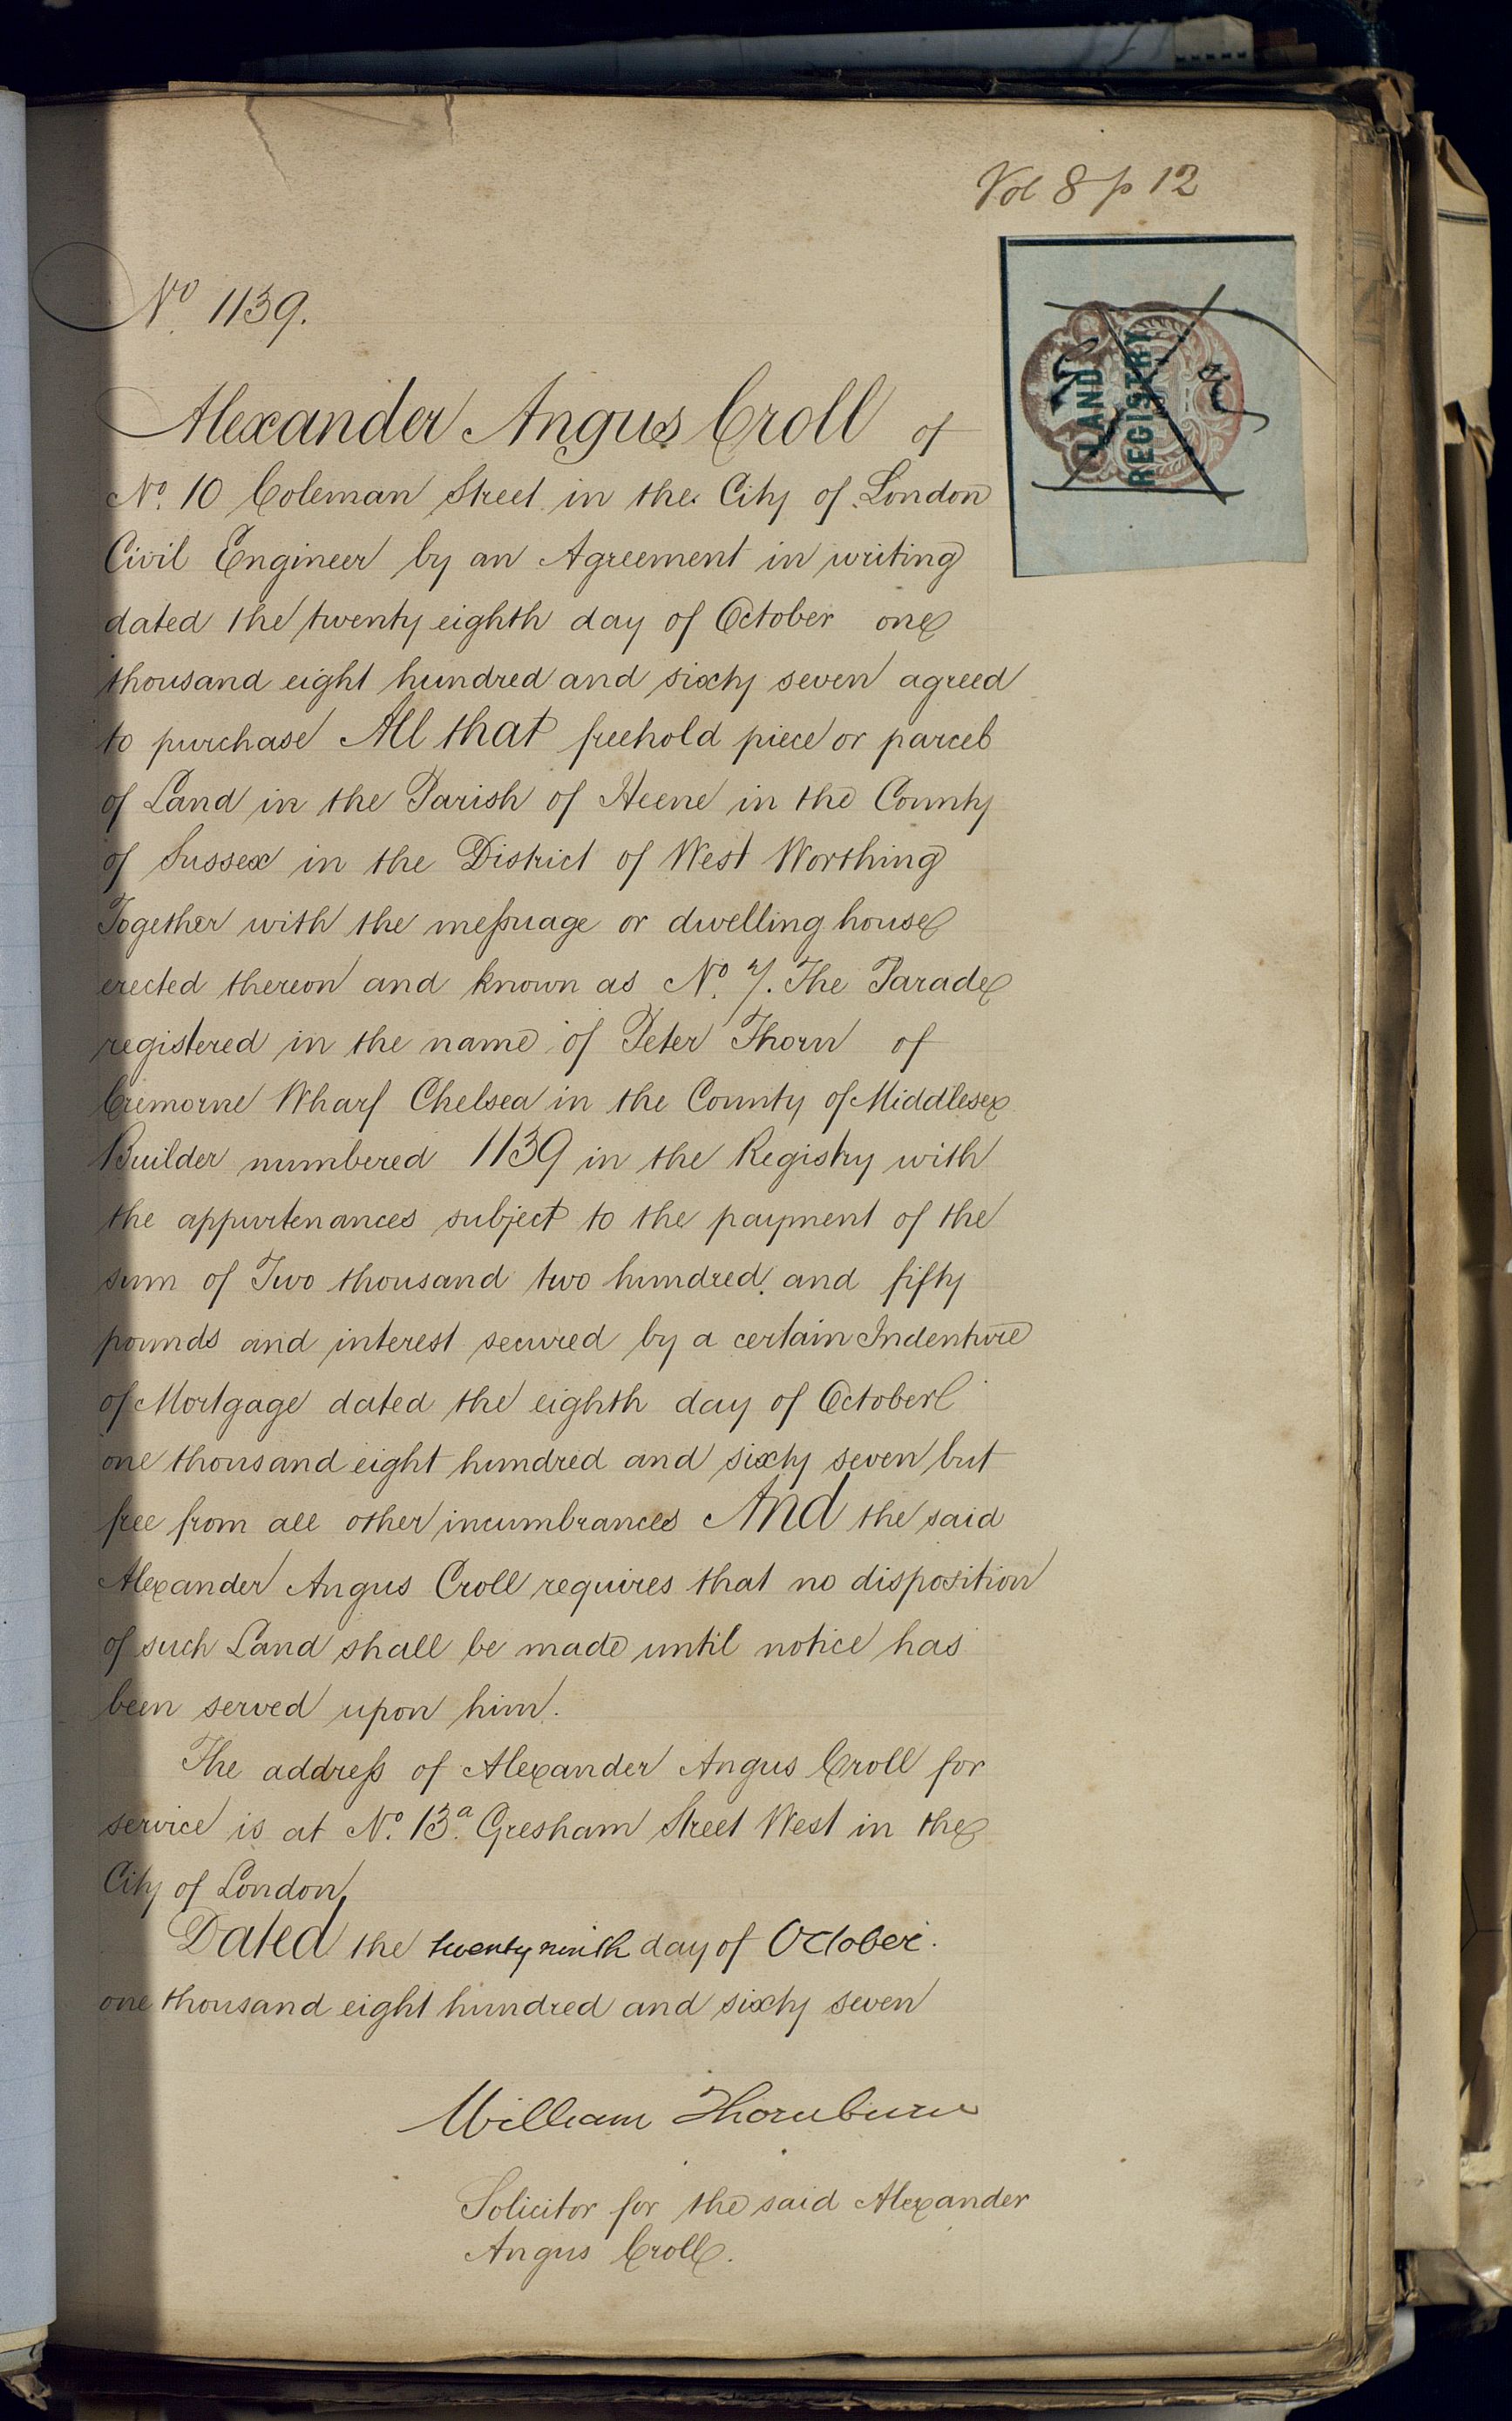 Vol 8 p 12
No 1139.
LAND
REGISTRY
Alexander Angus Croll of
No. 10 Coleman Street in the City of London
Civil Engineer by an Agreement in writing
dated the twenty eighth day of October one
thousand eight hundred and sixty seven agreed
to purchase All that freehold piece or parcel
of Land in the Parish of Heene in the County
of Sussex in the District of West Worthing
Together with the meſsuage or dwelling house
erected thereon and known as No. 7. The Parade
registered in the name of Peter Thorn of
Cremorne Wharf Chelsea in the County of Middlesex
Builder numbered 1139 in the Registry with
the appurtenances subject to the payment of the
sum of Two thousand two hundred and fifty
pounds and interest secured by a certain Indenture
of Mortgage dated the eighth day of October
one thousand eight hundred and sixty seven but
free from all other incumbrances And the said
Alexander Angus Croll requires that no disposition
of such Land shall be made until notice has
been served upon him.
The addreſs of Alexander Angus Croll for
service is at No. 13a. Gresham Street West in the
City of London
Dated the twenty ninth day of October.
one thousand eight hundred and sixty seven
William Thornburn
Solicitor for the said Alexander
Angus Croll.